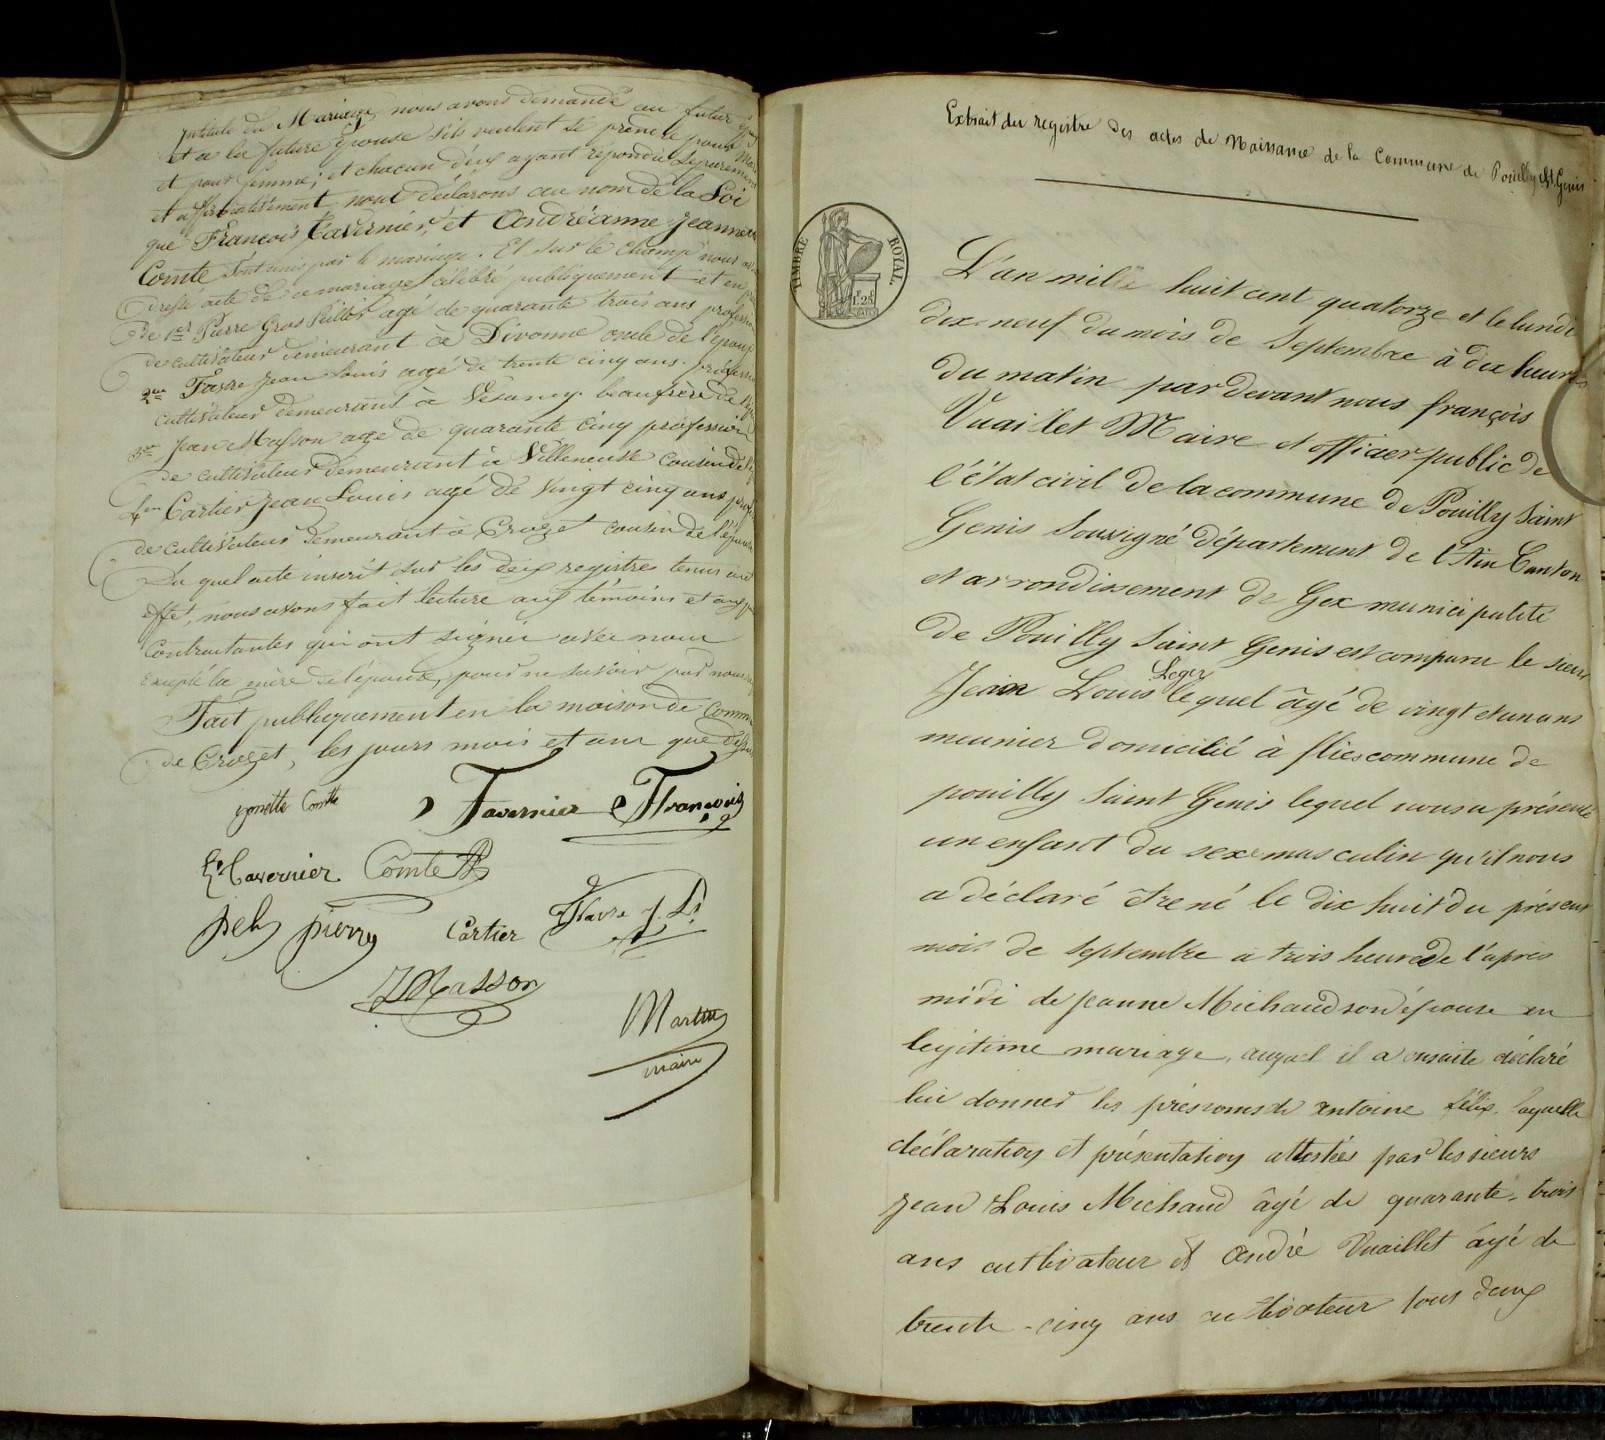 Intitulé du Mariage, nous avons demandé au futur époux
et a la future Epouse s'ils veulent se prendre pour Mari
et pour femme; et chacun d'eux ayant répondu séparement
et affirmativement nous déclarons au nom de la Loi
que François Tavernier, et Andréanne Jeannette
Comte sont unis par le mariage. Et sur le champ nous avons
dressé acte de ce mariage célébré publiquement et en
De 1er Pierre Gros fillex agé de quarante trois ans profession
de cultivateur demeurant à Divonne oncle de l'époux
2me Favre Jean Louis agé de trente cinq ans. profession
cultivateur demeurant à Vesancy beaufrère de
3me Jean Masson age de quarante cinq profession
de cultivateur demeurant à Villeneuve cousin de
4me Cartier Jean Louis agé de vingt cinq ans prof
de cultivateur demeurant à Crozet cousin de l'épouse
Du quel acte inscrit sur les deux registres tenus
effet, nous avons fait lecture aux témoins et aux
Contractantes qui ont signées avec nous
Excepté la mère de l'épouse, pour ne savoir pas
Fait publiquement en la maison de Commune
de Crozet, les jours mois et an que dessus
Comte Tavernier François
Tavernier Comte
pierry Cartier Favre J. Ls
J Masson
Martin
maire
Extrait du registre des actes de Naissance de la Commune de Pouilly St Genis
TIMBRE ROYAL
1f 25
L'an mille huit cent quatorze et le lundi
dix-neuf du mois de Septembre à dix heures
du matin par devant nous françois
Vuaillet Maire et officier public de
l'état civil de la commune de Pouilly Saint
Genis Soussigné département de l'Ain Canton
et arrondissement de Gex municipalité
de Pouilly Saint Genis est comparu le sieur
Leger
Jean Louis lequel âgé de vingt et un ans
meunier domicilié à flies commune de
pouilly Saint Genis lequel nous a présenté
un enfant du sexe masculin qu'il nous
a déclaré être né le dix huit du présent
mois de septembre a trois heure de l'après
midi de Jeanne Michaud son épouse en
legitime mariage, auquel il a ensuite déclaré
lui donner les prénoms de antoine félix laquelle
déclaration et présentation attestées par les sieurs
Jean Louis Michaud âgé de quarante-trois
ans cultivateur et André Vuaillet âgé de
trente-cinq ans cultivateur tous deux